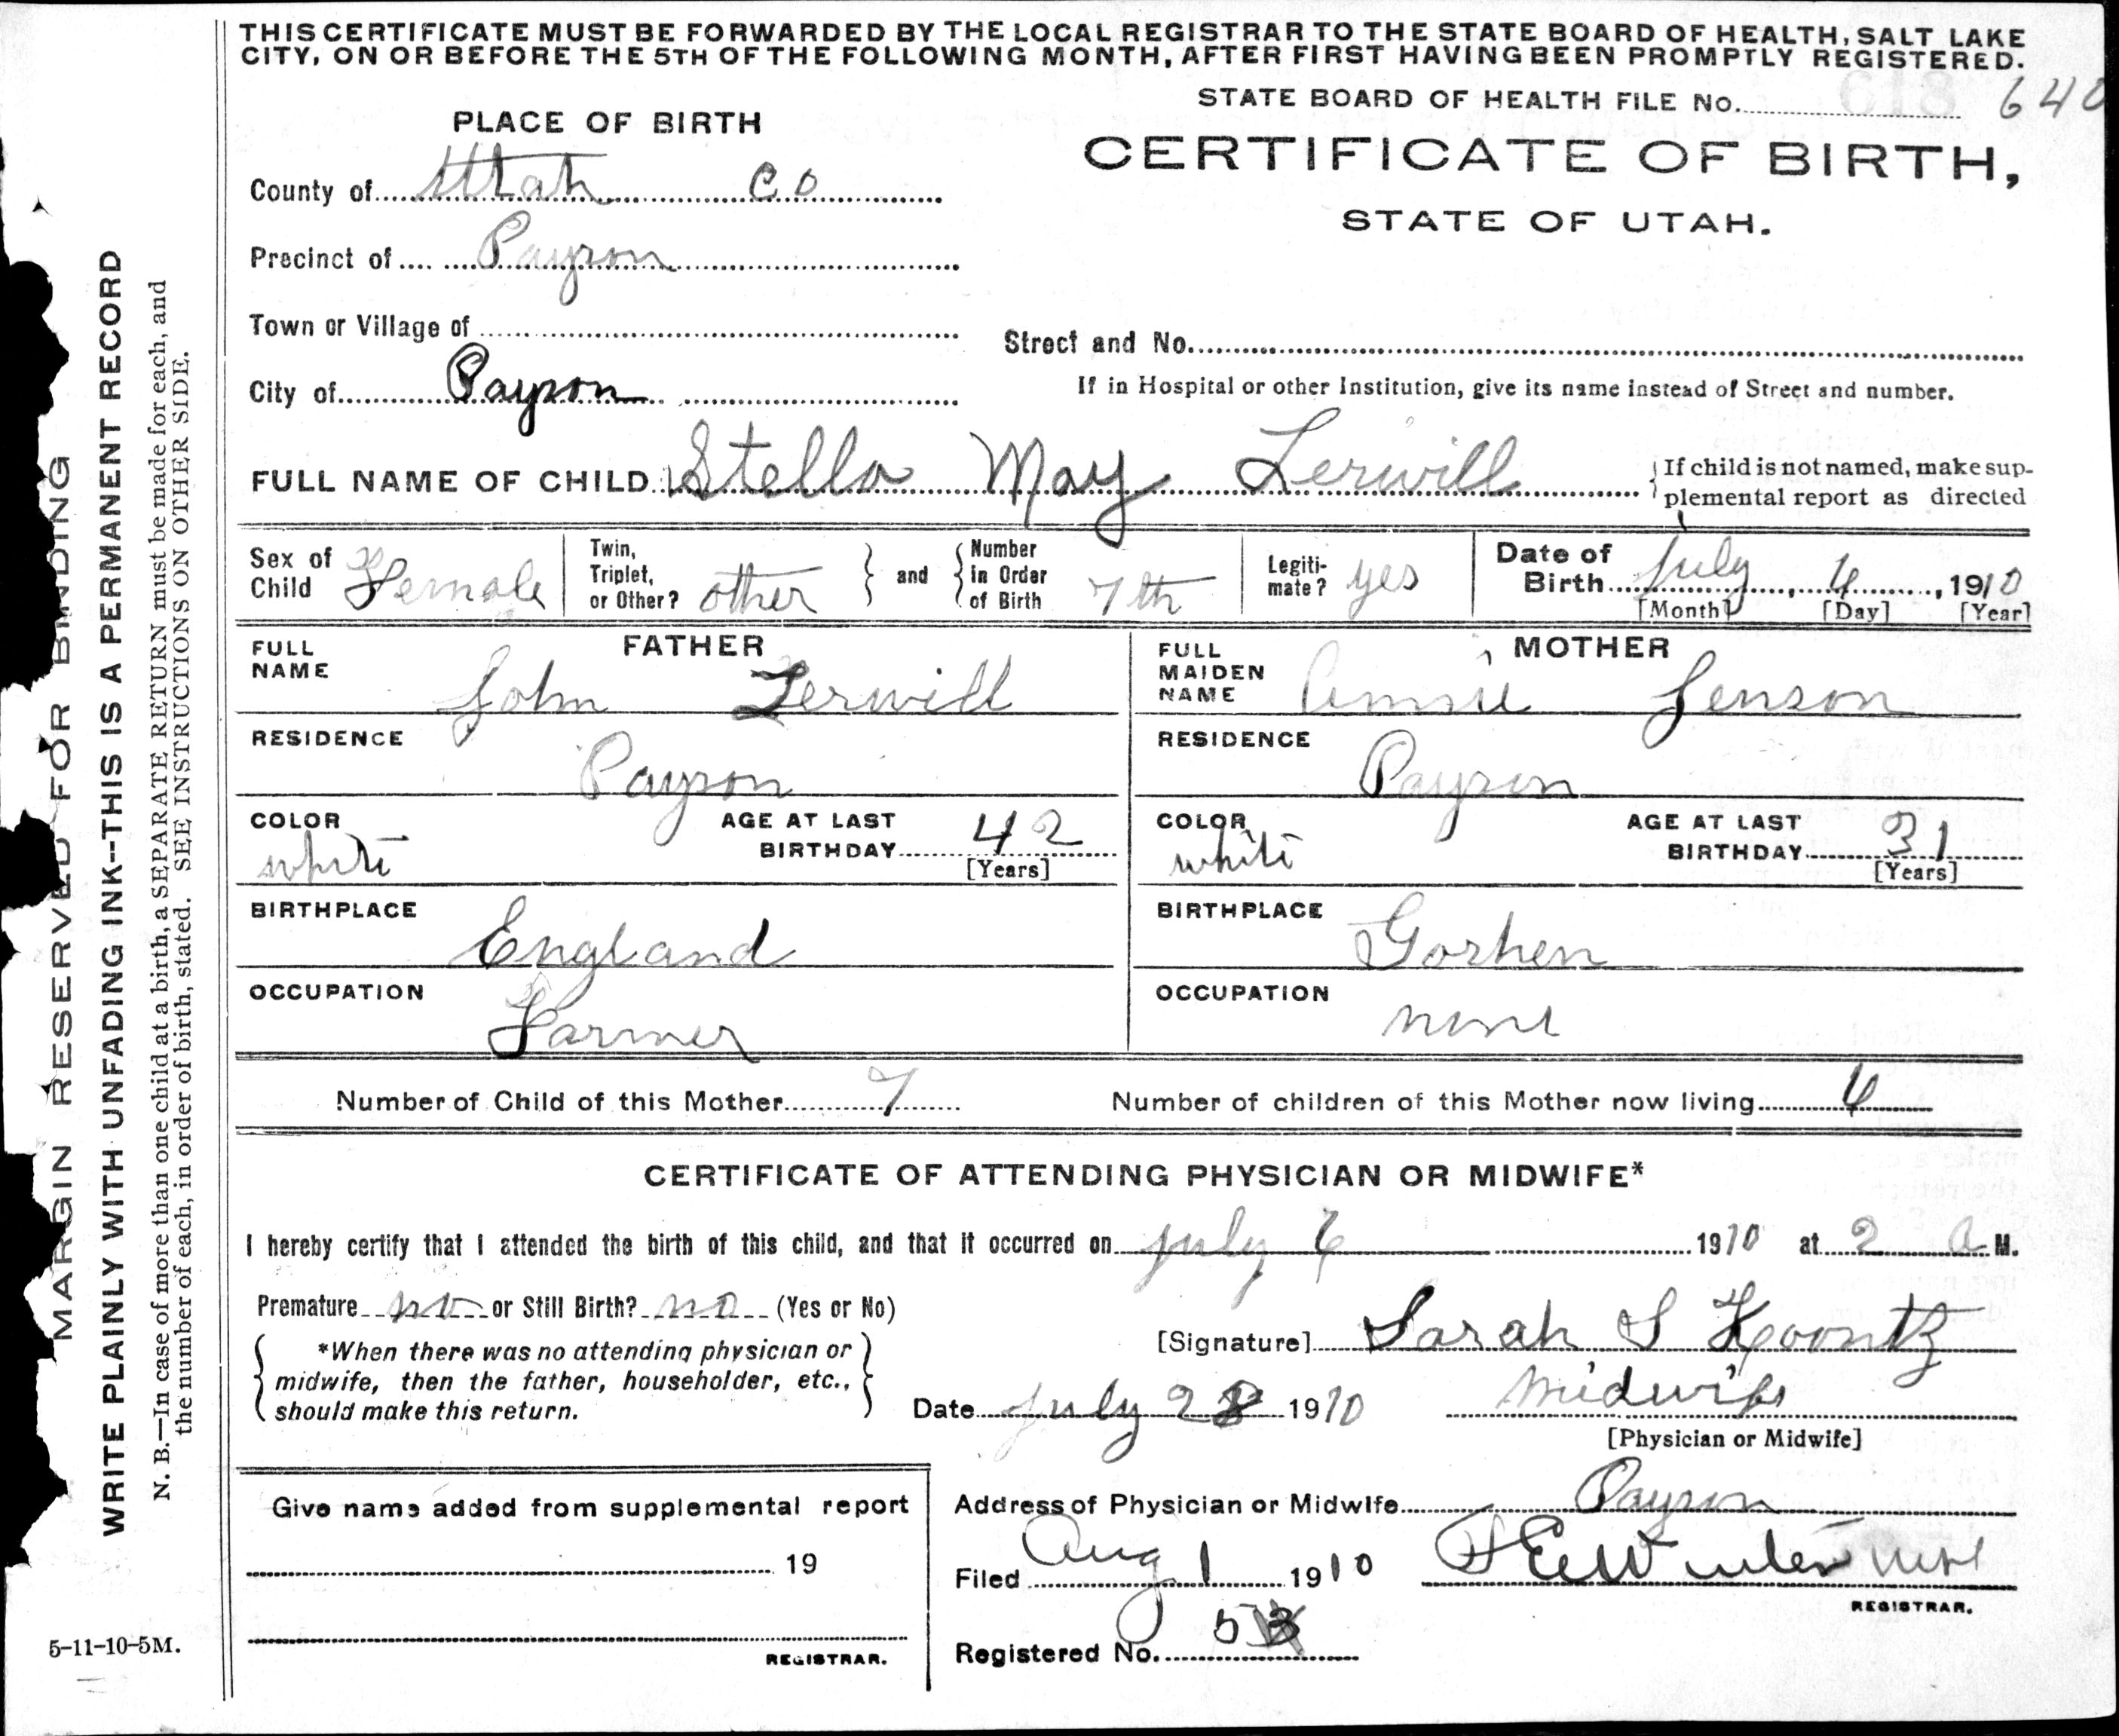 THIS CERTIFICATE MUST BE FORWARDED BY THE LOCAL REGISTRAR TO THE STATE BOARD OF HEALTH, SALT LAKE
CITY, ON OR BEFORE THE 5TH OF THE FOLLOWING MONTH, AFTER FIRST HAVING BEEN PROMPTLY REGISTERED.
STATE BOARD OF HEALTH FILE No. 640
PLACE OF BIRTH
CERTIFICATE OF BIRTH,
STATE OF UTAH.
County of Utah Co
Precinct of Payson
Town or Village of
Street and No.
City of Payson
If in Hospital or other Institution, give its name instead of Street and number.
FULL NAME OF CHILD Stella May Lerwill
{If child is not named, make sup-
plemental report as directed
Sex of Child Female
Twin, Triplet, or Other? other } and { Number in Order of Birth 7th
Legiti-
mate? yes
Date of Birth July 4, 1910
[Month] [Day] [Year]
FATHER
FULL NAME John Lerwill
MOTHER
FULL MAIDEN NAME Annie Jenson
RESIDENCE Payson
RESIDENCE Payson
COLOR white AGE AT LAST BIRTHDAY 42 [Years]
COLOR white AGE AT LAST BIRTHDAY 31 [Years]
BIRTHPLACE England
BIRTHPLACE Goshen
OCCUPATION Farmer
OCCUPATION none
Number of Child of this Mother 7
Number of children of this Mother now living
CERTIFICATE OF ATTENDING PHYSICIAN OR MIDWIFE*
I hereby certify that I attended the birth of this child, and that it occurred on July 1910 at 2 a M.
Premature no or Still Birth? no (Yes or No)
{ *When there was no attending physician or
midwife, then the father, householder, etc.,
should make this return. }
[Signature] Sarah S Koontz
Date July 28 1910
Midwife
[Physician or Midwife]
Give name added from supplemental report
19
REGISTRAR.
Address of Physician or Midwife Payson
Filed Aug 1 1910
REGISTRAR.
Registered No. 5
MARGIN RESERVED FOR BINDING
WRITE PLAINLY WITH UNFADING INK--THIS IS A PERMANENT RECORD
N. B.—In case of more than one child at a birth, a SEPARATE RETURN must be made for each, and
the number of each, in order of birth, stated. SEE INSTRUCTIONS ON OTHER SIDE.
5-11-10-5M.